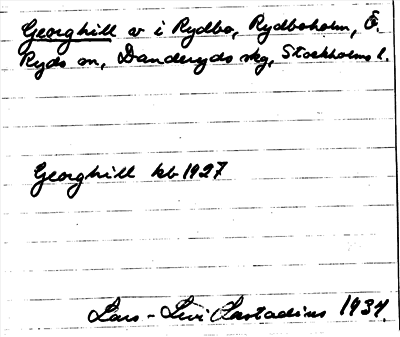 Georghill av i Rydbo, Rydboholm, Ö.
Ryds sn, Danderyds skg, Stockholms l.
Georghill kb 1927
Lars-Levi Læstadius 1934.